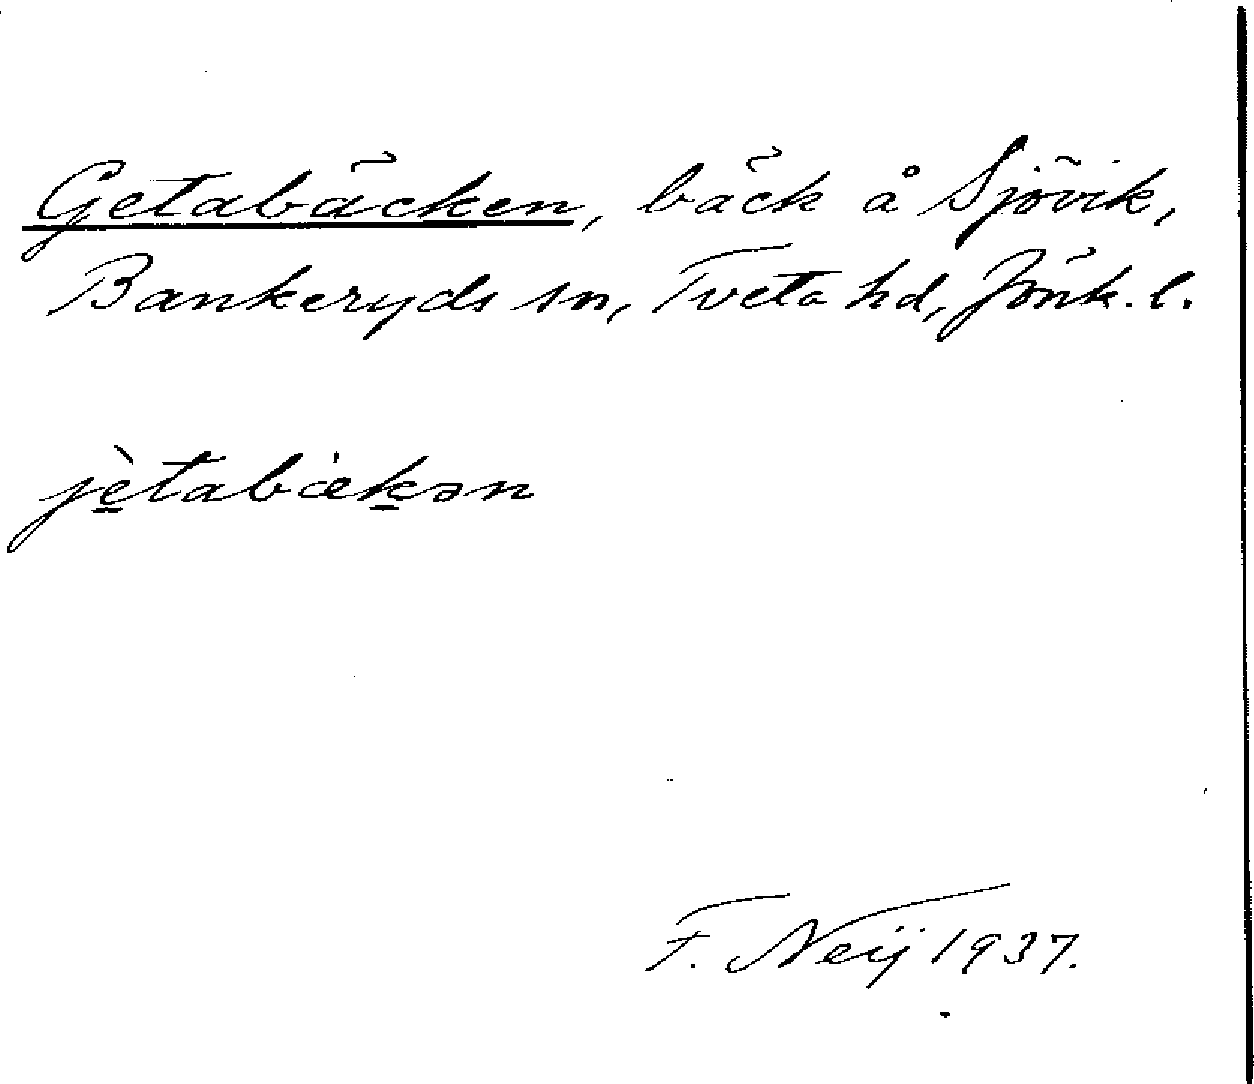 Getabäcken, bäck å Sjövik,
Bankeryds sn, Tveta hd, Jönk. l.
jètabækən
F. Neij 1937.